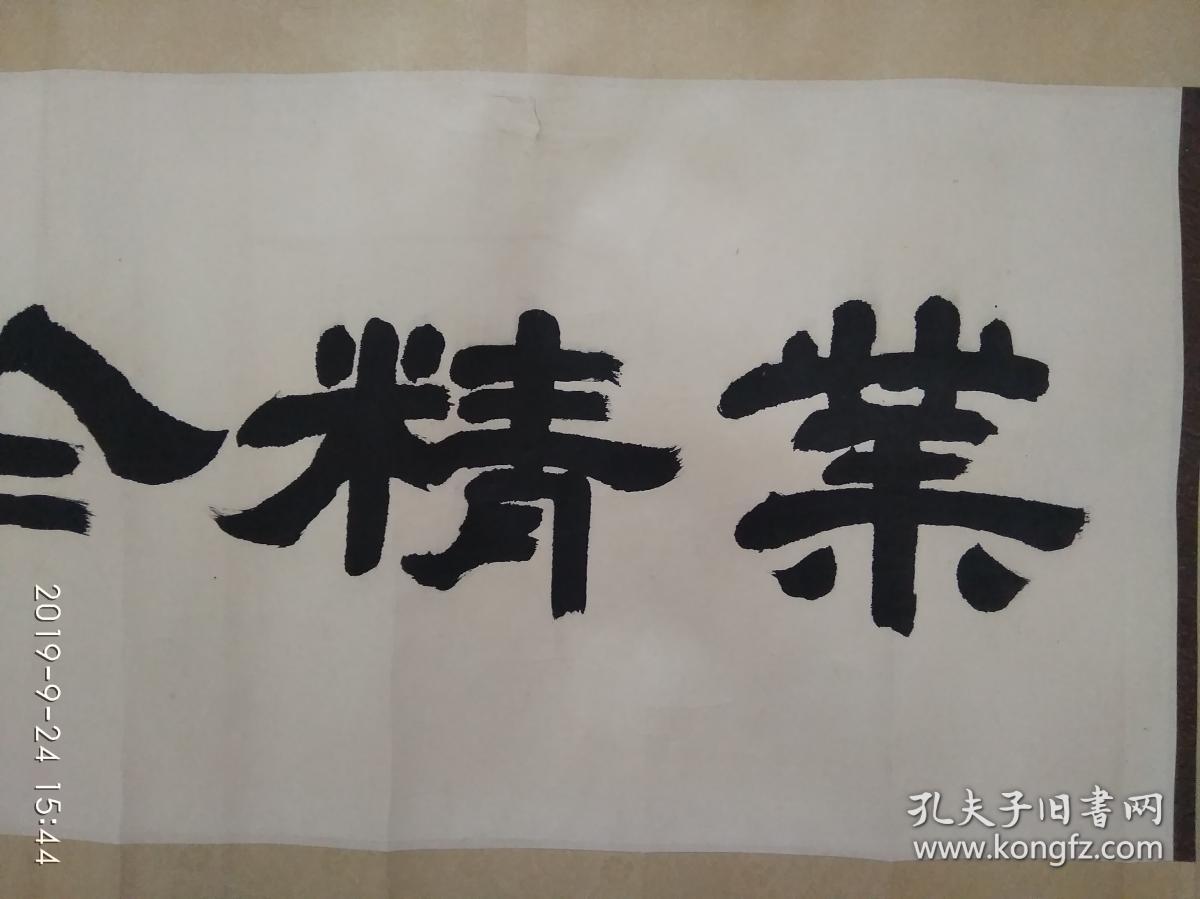 業精
2019-9-24 15:44
孔夫子旧書网
www.kongfz.com